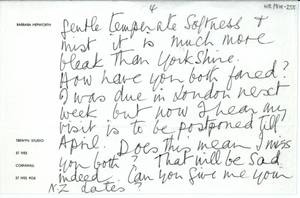 4
BARBARA HEPWORTH
gentle temperate softness &
mist it is much more
bleak than Yorkshire.
How have you both fared?
I was due in London next
week but now I hear my
visit is to be postponed till
April. Does this mean I miss
you both? That will be sad
indeed. Can you give me your
N.Z dates?
TREWYN STUDIO
ST IVES
CORNWALL